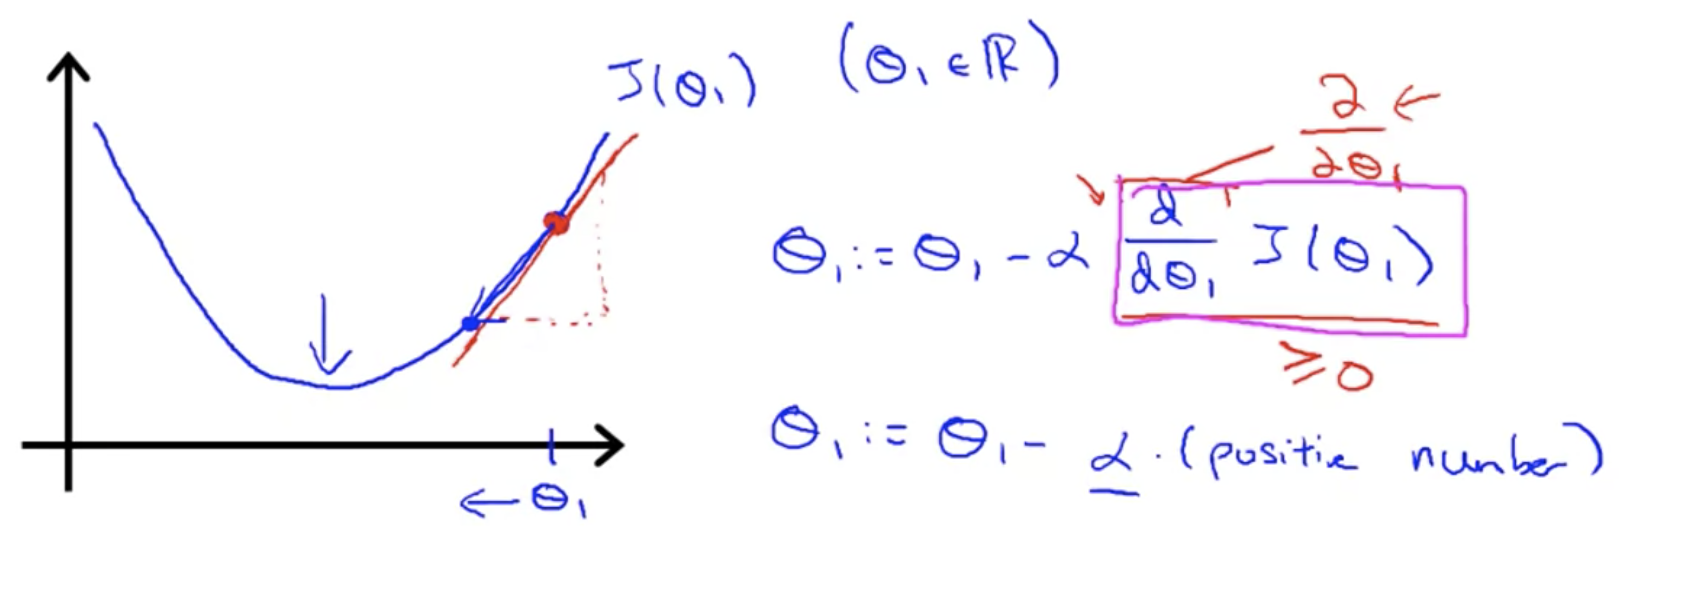 J(θ₁) (θ₁ ∈ ℝ)
∂ ←
∂θ₁
θ₁ := θ₁ - α d/dθ₁ J(θ₁)
≥ 0
θ₁ := θ₁ - α · (positive number)
← θ₁